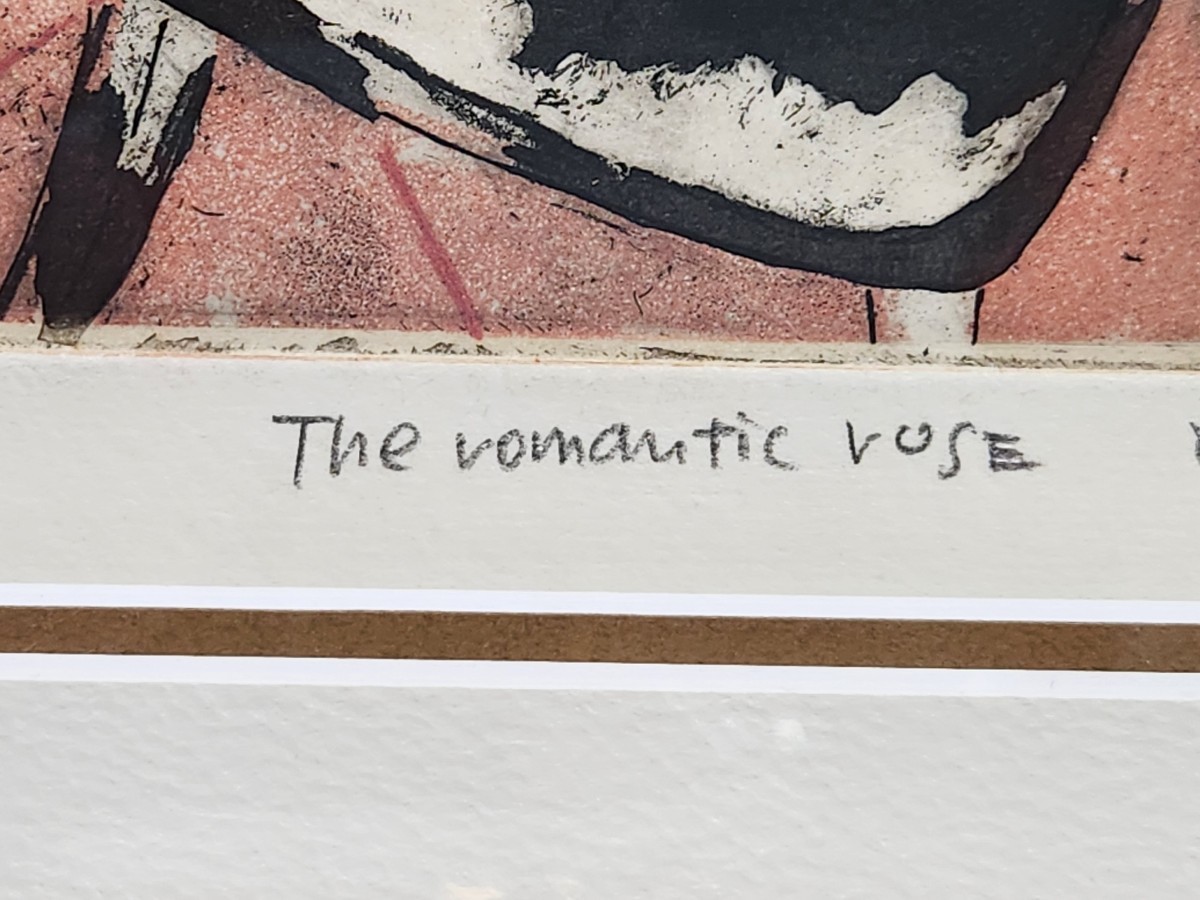 The romantic rose